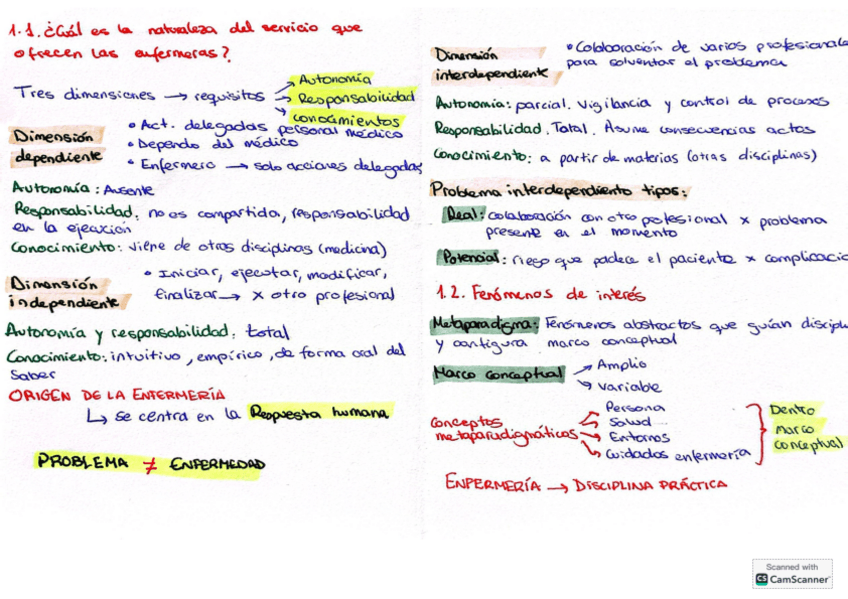 1.1. ¿Cuál es la naturaleza del servicio que
ofrecen las enfermeras?
Tres dimensiones → requisitos → Autonomía
→ Responsabilidad
→ conocimientos
Dimensión
dependiente
• Act. delegadas personal médico
• Depende del médico
• Enfermero → solo acciones delegadas
Autonomía: Ausente
Responsabilidad: no es compartida, responsabilidad
en la ejecución
Conocimiento: viene de otras disciplinas (medicina)
Dimensión
independiente
• Iniciar, ejecutar, modificar,
finalizar → x otro profesional
Autonomía y responsabilidad: total
Conocimiento: intuitivo, empírico, de forma oral del
saber
ORIGEN DE LA ENFERMERÍA
↳ se centra en la Respuesta humana
PROBLEMA ≠ ENFERMEDAD
Dimensión
interdependiente
• Colaboración de varios profesionale
para solventar el problema
Autonomía: parcial. Vigilancia y control de procesos
Responsabilidad. Total. Asume consecuencias actos
Conocimiento: a partir de materias (otras disciplinas)
Problema interdependiente tipos:
Real: colaboración con otro profesional x problema
presente en el momento
Potencial: riesgo que padece el paciente x complicacio
1.2. Fenómenos de interés
Metaparadigma: Fenómenos abstractos que guían discipl
y configura marco conceptual
Marco conceptual → Amplio
→ variable
Conceptos
metaparadigmáticos
→ Persona
→ Salud
→ Entornos
→ Cuidados enfermería
Dentro
marco
conceptual
ENFERMERÍA → DISCIPLINA PRÁCTICA
Scanned with
CS CamScanner